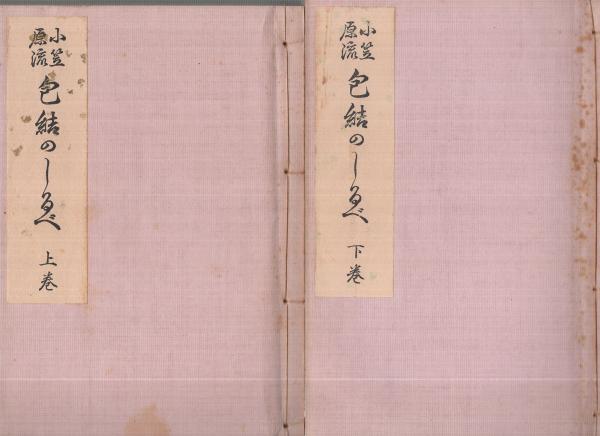 小笠原流 包結のしるべ 上巻
小笠原流 包結のしるべ 下巻